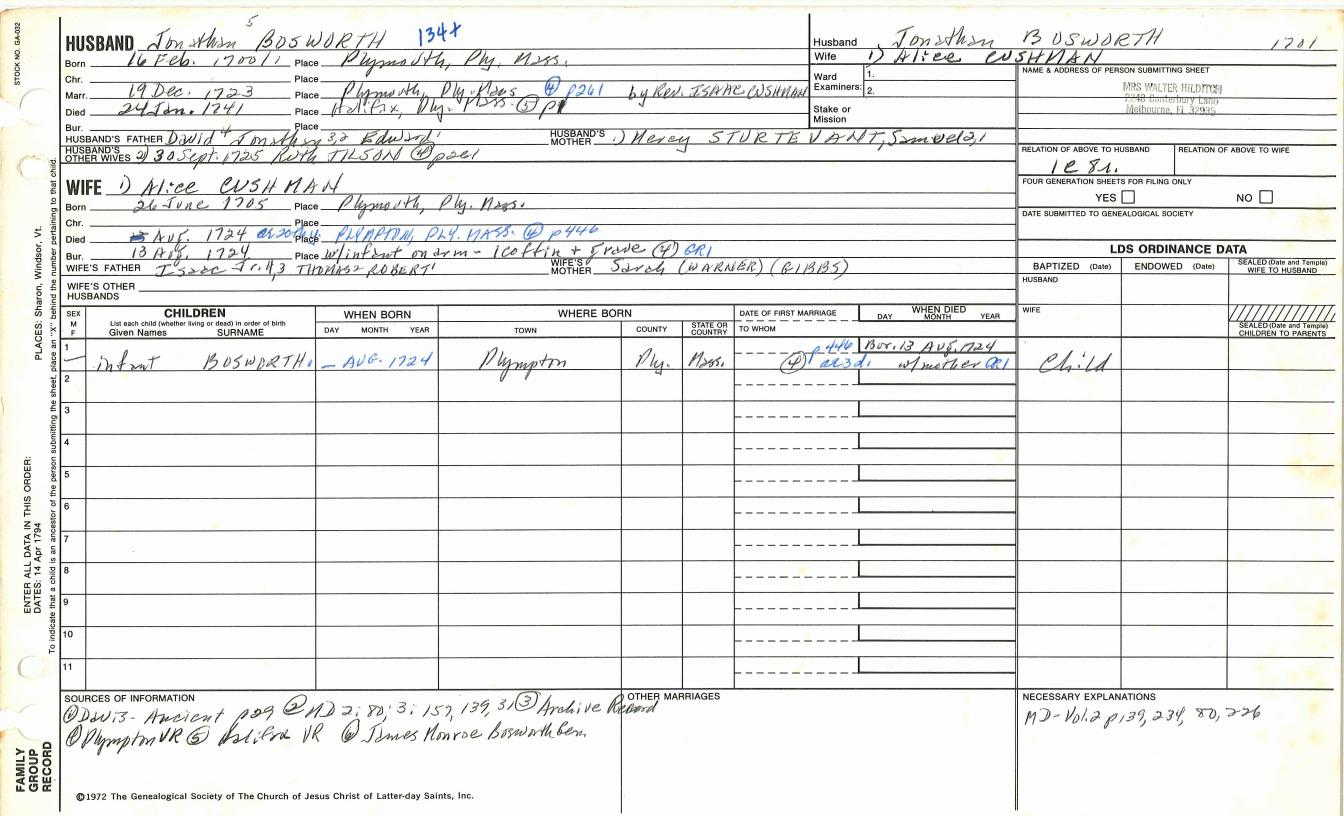 STOCK NO. GA-032
HUSBAND Jonathan 5 BOSWORTH 134+
Born 16 Feb. 1700/1 Place Plymouth, Ply. Mass.
Chr. Place
Marr. 19 Dec. 1723 Place Plymouth, Ply. Mass ④ p261 by Rev. ISAAC CUSHMAN
Died 24 Jan. 1741 Place Halifax, Ply. Mass. ⑤ p1
Bur. Place
HUSBAND'S FATHER David 4 Jonathan 3,2 Edward 1 HUSBAND'S MOTHER 1) Mercy STURTEVANT, Samuel 2,1
HUSBAND'S OTHER WIVES 2) 30 Sept. 1725 Ruth TILSON ④ p261
WIFE 1) Alice CUSHMAN
Born 26 June 1705 Place Plymouth, Ply. Mass.
Chr. Place
Died Aug. 1724 Place PLYMPTON, PLY. MASS. ④ p446
Bur. 13 Aug. 1724 Place w/infant on arm - 1 coffin + grave ④ GR1
WIFE'S FATHER Isaac Jr. 4,3 THOMAS 2 ROBERT 1 WIFE'S MOTHER Sarah (WARNER) (GIBBS)
WIFE'S OTHER HUSBANDS
Husband Jonathan BOSWORTH 1701
Wife 1) Alice CUSHMAN
Ward Examiners: 1.
2.
Stake or Mission
NAME & ADDRESS OF PERSON SUBMITTING SHEET
MRS WALTER HILDITCH
2248 Canterbury Lane
Melbourne, Fl 32935
RELATION OF ABOVE TO HUSBAND RELATION OF ABOVE TO WIFE
1C 8r.
FOUR GENERATION SHEETS FOR FILING ONLY
YES NO
DATE SUBMITTED TO GENEALOGICAL SOCIETY
LDS ORDINANCE DATA
BAPTIZED (Date) ENDOWED (Date) SEALED (Date and Temple) WIFE TO HUSBAND
HUSBAND
WIFE
SEALED (Date and Temple) CHILDREN TO PARENTS
SEX M F
CHILDREN
List each child (whether living or dead) in order of birth
Given Names SURNAME
WHEN BORN
DAY MONTH YEAR
WHERE BORN
TOWN COUNTY STATE OR COUNTRY
DATE OF FIRST MARRIAGE
TO WHOM
WHEN DIED
DAY MONTH YEAR
1 infant BOSWORTH. — AUG. 1724 Plympton Ply. Mass. ④ p446 Bur. 13 AUG. 1724 w/mother GR1 Child
2
3
4
5
6
7
8
9
10
11
SOURCES OF INFORMATION
① Davis - Ancient p29 ② MD 2:80; 3:157, 139, 31 ③ Archive Record
④ Plympton VR ⑤ Halifax VR ⑥ James Monroe Bosworth
OTHER MARRIAGES
NECESSARY EXPLANATIONS
MD-Vol.2 p139, 234, 80, 226
©1972 The Genealogical Society of The Church of Jesus Christ of Latter-day Saints, Inc.
ENTER ALL DATA IN THIS ORDER:
DATES: 14 Apr 1794
PLACES: Sharon, Windsor, Vt.
To indicate that a child is an ancestor of the person submitting the sheet, place an "X" behind the number pertaining to that child.
FAMILY GROUP RECORD